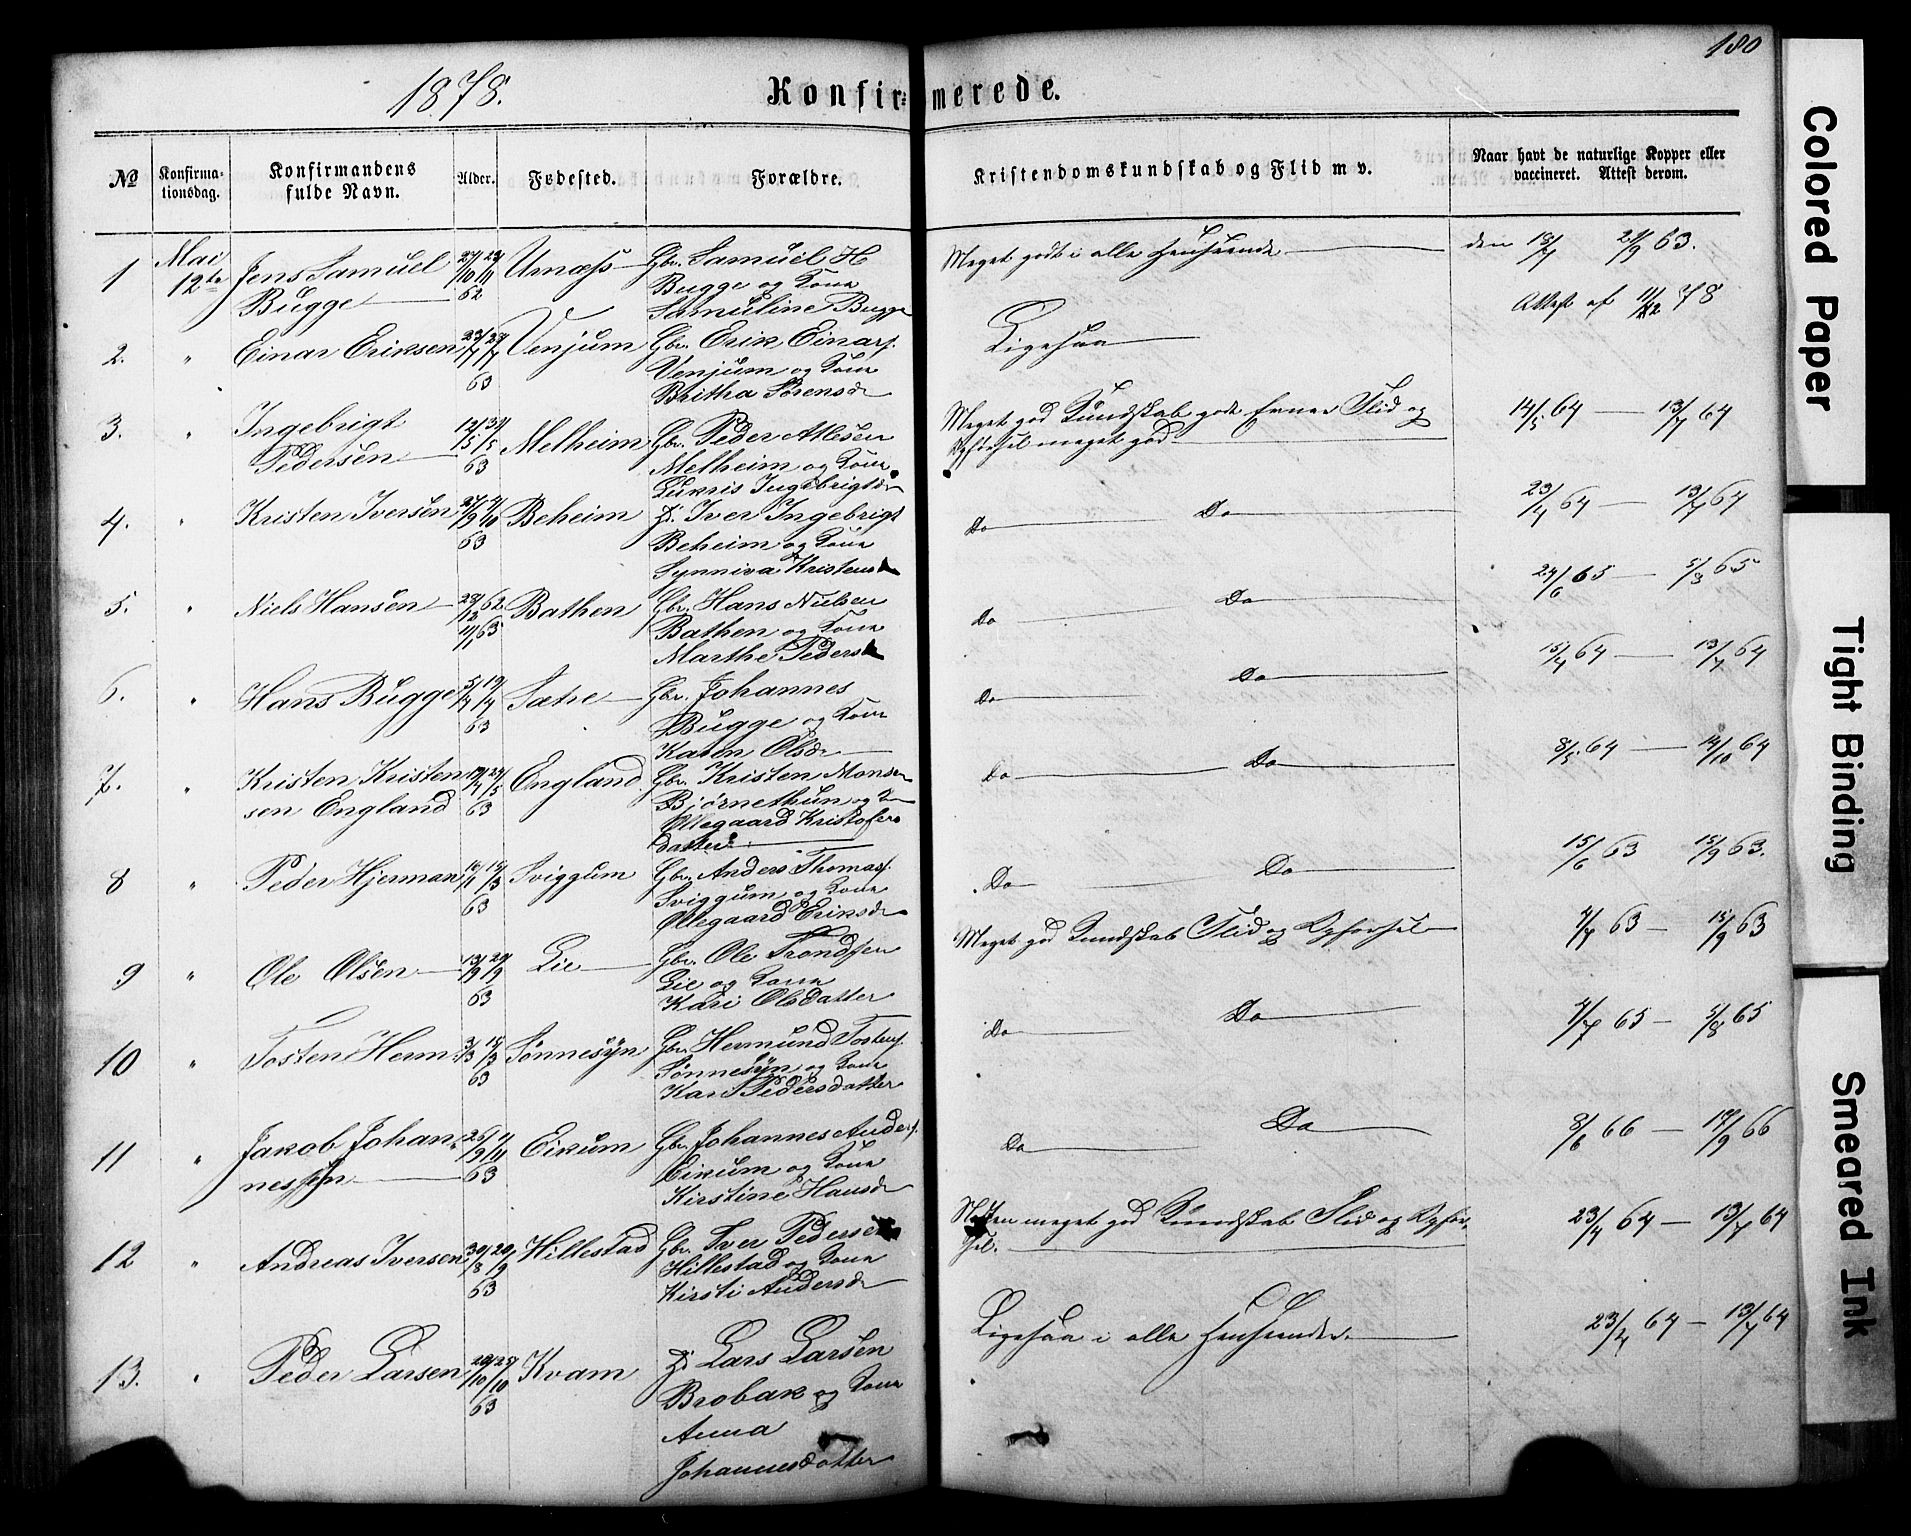 180
1878.
Konfirmerede.
No
Konfirma-
tionsdag.
Konfirmandens
fulde Navn.
Alder.
Fødested.
Forældre.
Kristendomskundskab og Flid m v.
Naar havt de naturlige Kopper eller
vaccineret. Attest derom.
1
Mai
12te
Jens Samuel
Bugge
27/10 23/11
62
Urnæss
Gbr. Samuel H
Bugge og Kone
Samuline Bugge
Meget godt i alle Henseende
den 18/7 21/9 63.
Attest af 11/12 78
2.
"
Einar Eriksen
63
Venjum
Gbr. Erik Einars.
Venjum og Kone
Britha Sørensd
Ligesaa
3.
"
Ingebrigt
Pedersen
63
Melheim
Gbr. Peder Atlesen
Melheim og Kone
Lukris Ingebrigtd
Meget god Kundskab gode Evner Flid og
Opførsel meget god
14/5 64 — 13/7 64
4.
"
Kristen Iversen
63
Beheim
Iver Ingebrigt
Beheim og Kone
Synniva Kristensd
Do Do
23/4 64 — 13/7 64
5.
"
Niels Hansen
28/12 62
11/1 63
Bathen
Gbr. Hans Nielsen
Bathen og Kone
Marthe Pedersd
Do Do
24/6 65 — 5/8 65
6.
"
Hans Bugge
5/4 19/4
63
Sætre
Gbr. Johannes
Bugge og Kone
Karen Olsd
Do Do
15/4 64 — 13/7 64
7.
"
Kristen Kristen
sen England
63
England
Gbr. Kristen Monsen
Bjørnethun og Kone
Ollegaard Kristofers
datter
Do Do
8/5 64 — 14/10 64
8
"
Peder Hjerman
63
Sviggum
Gbr. Anders Thomas.
Sviggum og Kone
Ollegaard Eriksd
Do Do
15/6 63 15/9 63.
9
"
Ole Olsen
63
Lie
Gbr. Ole Trondsen
Lie og Kone
Kari Olsdatter
Meget god Kundskab Flid og Opførsel
7/7 63 — 15/9 63
10
"
Tosten Herm
63
Sønnesyn
Gbr. Hermund Tostens.
Sønnesyn og Kone
Kari Pedersdatter
Do Do
7/7 65 — 5/8 65
11
"
Jakob Johan
nessen
26/9 1/11
63
Eikum
Gbr. Johannes Anders.
Eikum og Kone
Kirstine Hansd
Do Do
8/6 66 — 19/9 66
12
"
Andreas Iversen
30/8 20/9
63
Hillestad
Gbr. Iver Pedersen
Hillestad og Kone
Kirsti Andersd
Næsten meget god Kundskab Flid og Opfør-
sel.
23/4 64 — 13/7 64
13.
"
Peder Larsen
63
Kvam
Lars Larsen
Brobak og Kone
Anna
Johannesdatter
Ligesaa i alle Henseender.
23/4 64 — 13/7 64
Colored Paper
Tight Binding
Smeared Ink